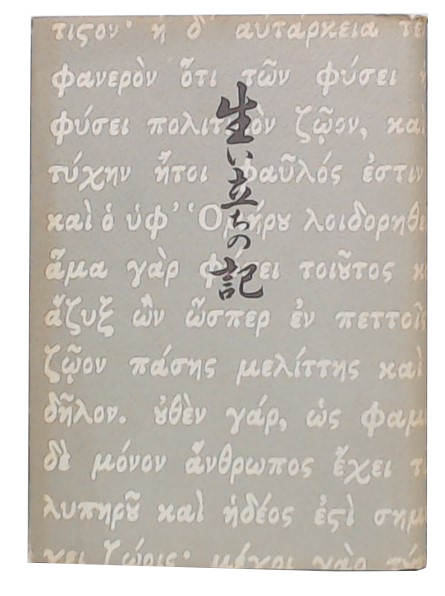 生い立ちの記
τιζον· ἡ δ' αὐτάρκεια τέ
φανερὸν ὅτι τῶν φύσει
φύσει πολιτ ὸν ζῷον, καὶ
τύχην ἤτοι φαῦλός ἐστιν
καὶ ὁ ὑφ' Ὁμήρȣ λοιδορηθε
ἅμα γὰρ φύσει τοιȣ͂τος κ
ἄζυξ ὢν ὥσπερ ἐν πεττοῖς
ζῷον πάσης μελίττης καὶ
δῆλον. ȣ̓θὲν γάρ, ὡς φαμ
δὲ μόνον ἄνθρωπος ἔχει τ
λυπηρȣ͂ καὶ ἡδέος ἐϛὶ σημ